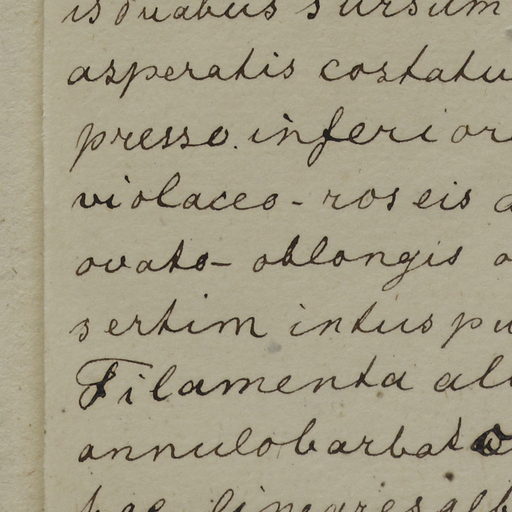 is duabus sursum
asperatis costatu
presso. inferior
violaceo - roseis
ovato - oblongis
sertim intus pu
Filamenta al
annulo barbato